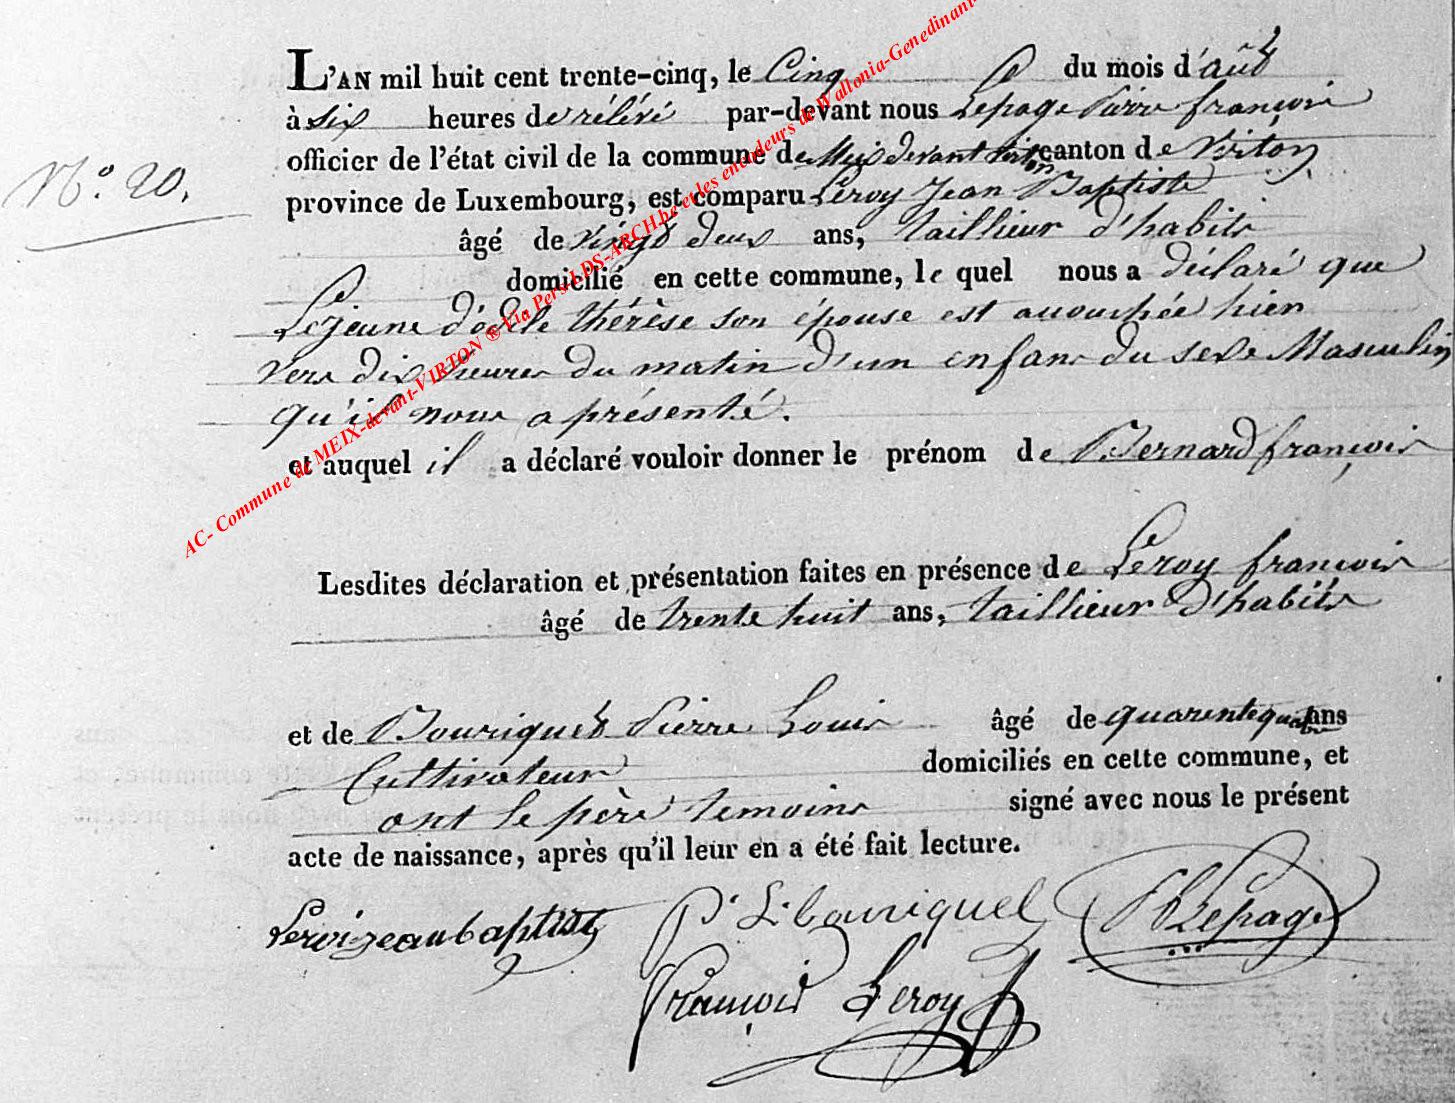 L'AN mil huit cent trente-cinq, le Cinq du mois d'aût
N.° 20.
à six heures de rélévé par-devant nous Lepage Pierre françois
officier de l'état civil de la commune de Meix devant Virton canton de Virton
province de Luxembourg, est comparu Leroy Jean Baptiste
âgé de vingt deux ans, taillieur d'habits
domicilié en cette commune, le quel nous a déclaré que
Lejeune thérèse son épouse est accouchée hier
vers dix heures du matin d'un enfant du sexe Masculin
qu'il nous a présenté.
et auquel il a déclaré vouloir donner le prénom de Bernard françois
Lesdites déclaration et présentation faites en présence de Leroy francois
âgé de trente huit ans, taillieur d'habits
et de Bouriquet Pierre Louis âgé de quarente quatre ans
Cultivateur domiciliés en cette commune, et
ont le père temoins signé avec nous le présent
acte de naissance, après qu'il leur en a été fait lecture.
P. L. bouriquel PLepage
Leroi jeanbaptiste
François Leroy
AC- Commune de MEIX-devant-VIRTON ® Via Pers-LDS-ARCH.be et les encodeurs de Wallonia-Genedinant-